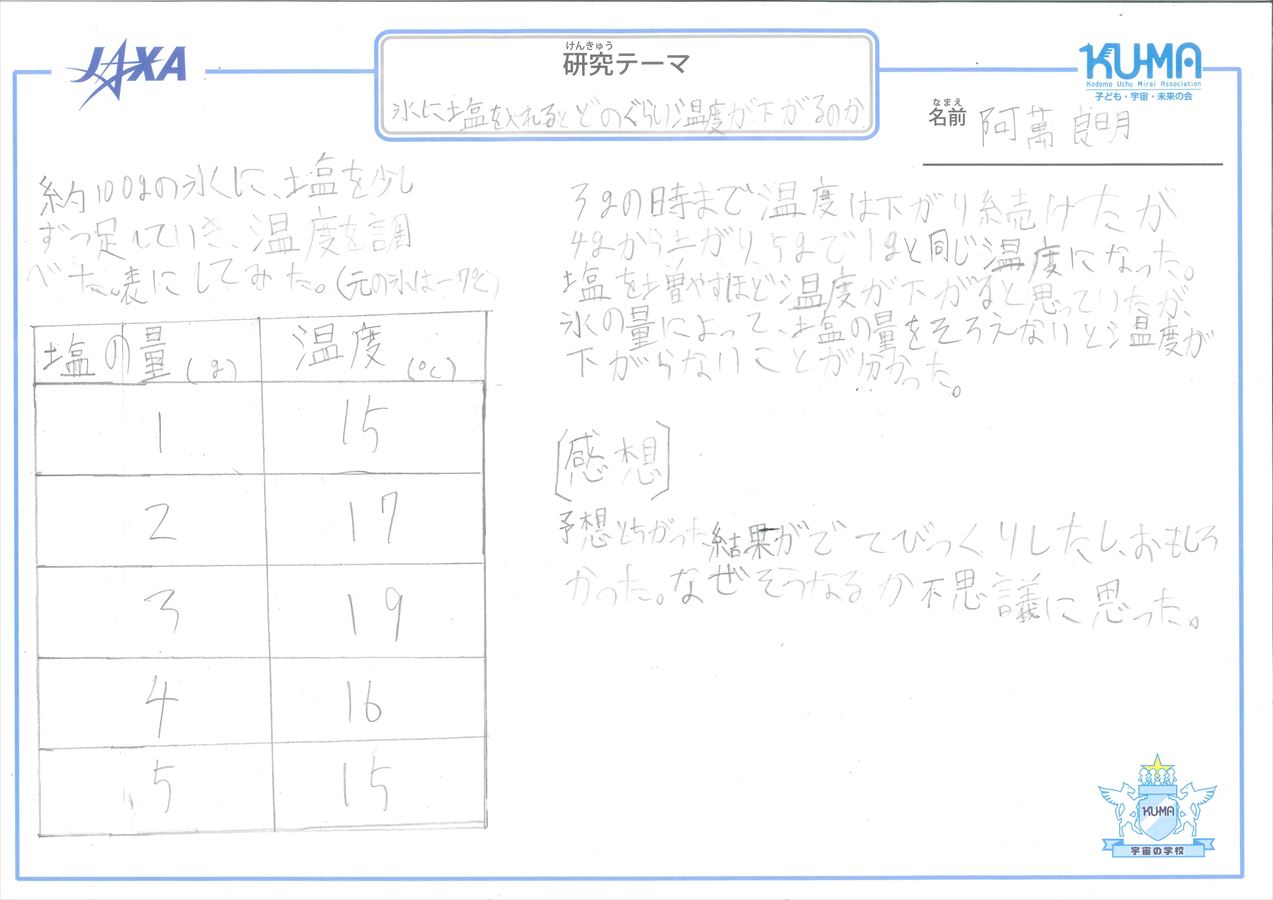 JAXA
けんきゅう
研究テーマ
氷に塩を入れるとどのぐらい温度が下がるのか
KU-MA
Kodomo Uchu Mirai Association
子ども・宇宙・未来の会
なまえ
名前 阿萬 良明
約100gの氷に、塩を少し
ずつ足していき、温度を調
べた。表にしてみた。(元の氷は-7℃)
塩の量(g) 温度(℃)
1 15
2 17
3 19
4 16
5 15
3gの時まで温度は下がり続けたが
4gから上がり、5gで1gと同じ温度になった。
塩を増やすほど温度が下がると思っていたが、
氷の量によって、塩の量をそろえないと温度が
下がらないことが分かった。
[感想]
予想とちがった結果がでてびっくりしたし、おもしろ
かった。なぜそうなるか不思議に思った。
KU-MA
宇宙の学校